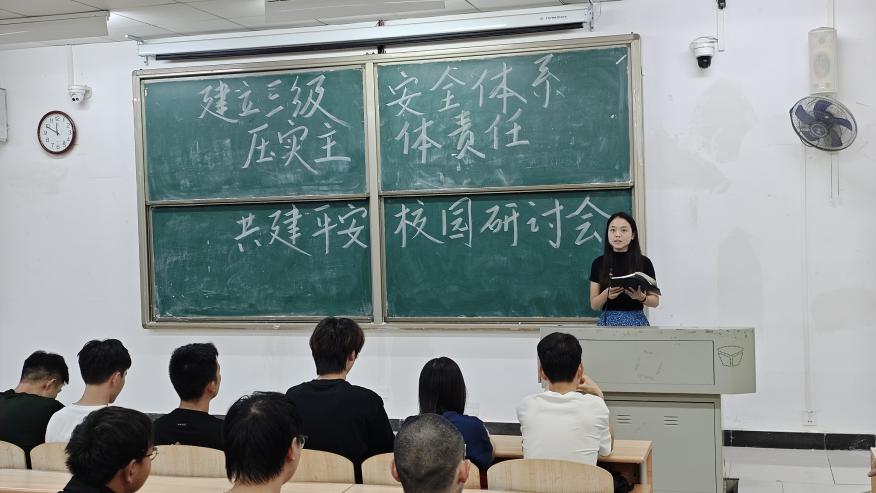 建立三级安全体系
压实主体责任
共建平安校园研讨会